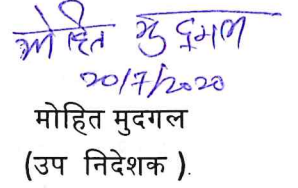 मोहित मुद्गल
20/7/2020
मोहित मुदगल
(उप निदेशक ).